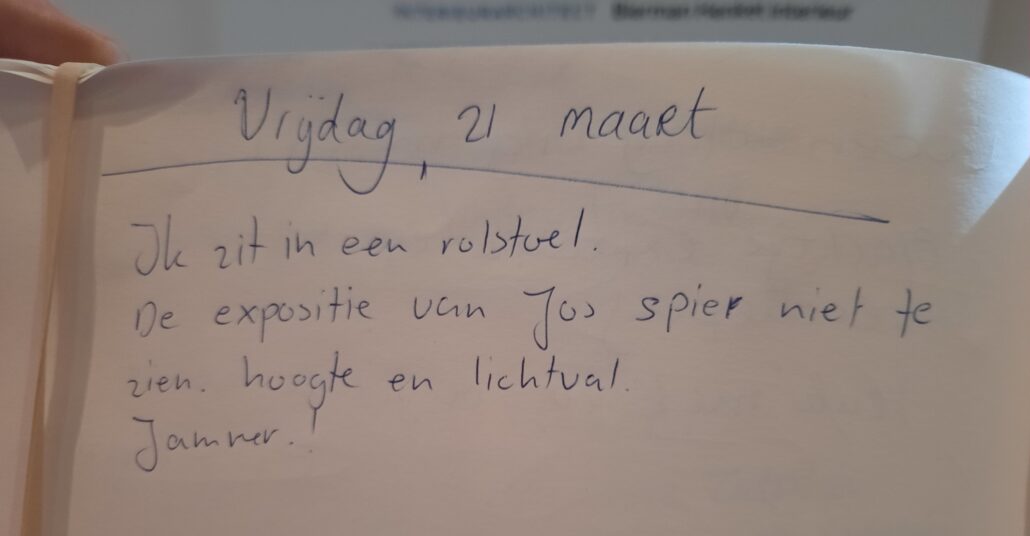 INTERIEURARCHITECT Bierman Henket interieur
Vrijdag, 21 maart
Ik zit in een rolstoel.
De expositie van Jos spier niet te
zien. hoogte en lichtval.
Jammer.!